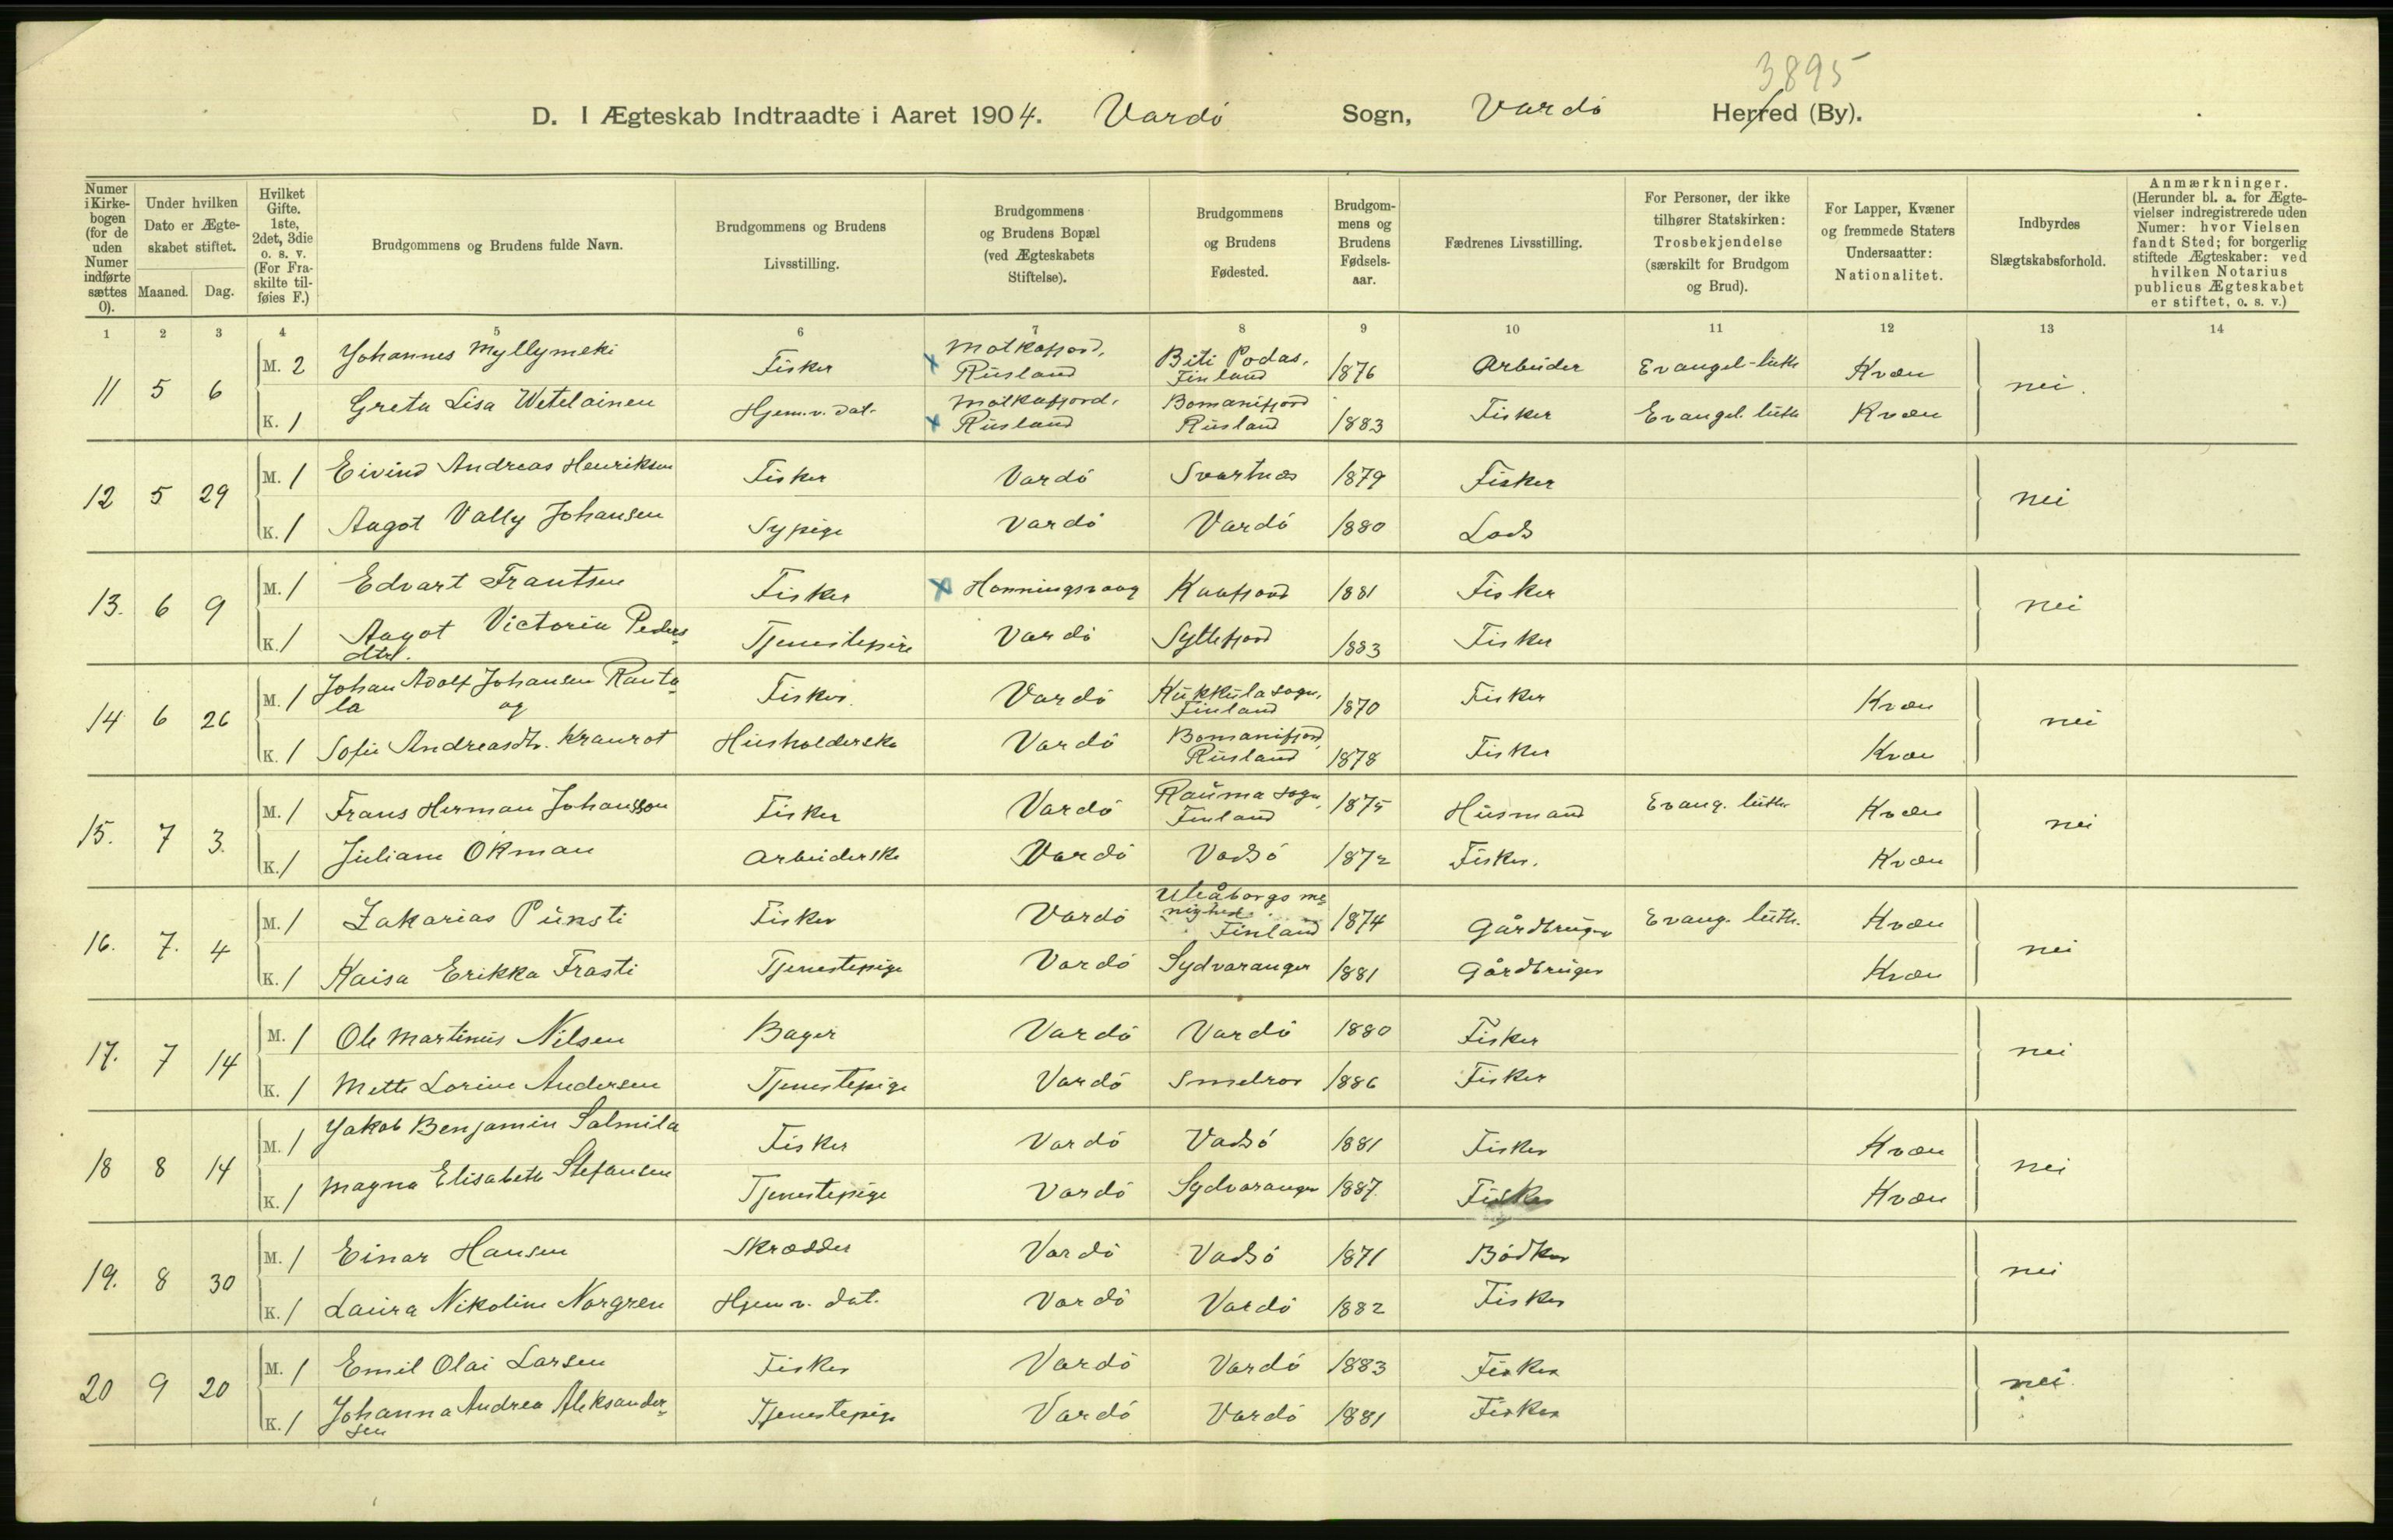 3895
D. I Ægteskab Indtraadte i Aaret 1904. Vardö Sogn, Vardö Herred (By).
Numer i Kirke-bogen (for de uden Numer indførte sættes 0). Under hvilken Dato er Ægte-skabet stiftet. Maaned. Dag. Hvilket Gifte. 1ste, 2det, 3die o. s. v. (For Fra-skilte til-føies F.) Brudgommens og Brudens fulde Navn. Brudgommens og Brudens Livsstilling. Brudgommens og Brudens Bopæl (ved Ægteskabets Stiftelse). Brudgommens og Brudens Fødested. Brudgom-mens og Brudens Fødsels-aar. Fædrenes Livsstilling. For Personer, der ikke tilhører Statskirken: Trosbekjendelse (særskilt for Brudgom og Brud). For Lapper, Kvæner og fremmede Staters Undersaatter: Nationalitet. Indbyrdes Slægtskabsforhold. Anmærkninger. (Herunder bl. a. for Ægte-vielser indregistrerede uden Numer: hvor Vielsen fandt Sted; for borgerlig stiftede Ægteskaber: ved hvilken Notarius publicus Ægteskabet er stiftet, o. s. v.)
1 2 3 4 5 6 7 8 9 10 11 12 13 14
11 5 6 M. 2 Johannes Myllymeki Fisker x Motkafjord, Rusland Biti Podas, Finland 1876 Arbeider Evangel-luth Kvæn nei.
K. 1 Greta Lisa Wetelainen Hjem.v. dat. x Motkafjord, Rusland Bomanifjord Rusland 1883 Fisker Evangel. luth Kvæn
12 5 29 M. 1 Eivind Andreas Henriksen Fisker Vardö Svartnæs 1879 Fisker nei
K. 1 Aagot Vally Johansen Sypige Vardö Vardö 1880 Lods
13. 6 9 M. 1 Edvart Frantsen Fisker x Honningsvaag Kaafjord 1881 Fisker nei
K. 1 Aagot Victoria Peders dtr. Tjenestepige Vardö Syltefjord 1883 Fisker
14 6 26 M. 1 Johan Adolf Johansen Ranta la og Fisker. Vardö Kukkula sogn, Finland 1870 Fisker Kvæn nei
K. 1 Sofie Andreasdtr. Kraurot Husholderske Vardö Bomanifjord, Rusland 1878 Fisker Kvæn
15. 7 3. M. 1 Frans Herman Johansson Fisker Vardö Rauma sogn, Finland 1875 Husmand Evang. luth. Kvæn nei
K. 1 Juliane Okman Arbeiderske Vardö Vadsö 1872 Fisker. Kvæn
16. 7. 4 M. 1 Zakarias Punsti Fisker Vardö Uleåborgs me nighed Finland 1874 Gårdbruger Evang. luth. Kvæn nei
K. 1 Kaisa Erikka Frasti Tjenestepige Vardö Sydvaranger 1881 Gårdbruger Kvæn
17. 7 14 M. 1 Ole Martinus Nilsen Bager Vardö Vardö 1880 Fisker nei
K. 1 Mette Lorine Andersen Tjenestepige Vardö Smelror 1886 Fisker
18 8 14 M. 1 Jakob Benjamin Salmila Fisker Vardö Vadsö 1881 Fisker Kvæn nei
K. 1 Magna Elisabeth Stefansen Tjenestepige Vardö Sydvaranger 1887. Fisker Kvæn
19. 8 30 M. 1 Einar Hansen Skrædder Vardö Vadsö 1871 Bödker nei
K. 1 Laura Nikoline Norgren Hjem v. dat. Vardö Vardö 1882 Fisker
20 9 20 M. 1 Emil Olai Larsen Fisker Vardö Vardö 1883 Fisker nei.
K. 1 Johanna Andrea Aleksander sen Tjenestepige Vardö Vardö 1881 Fisker